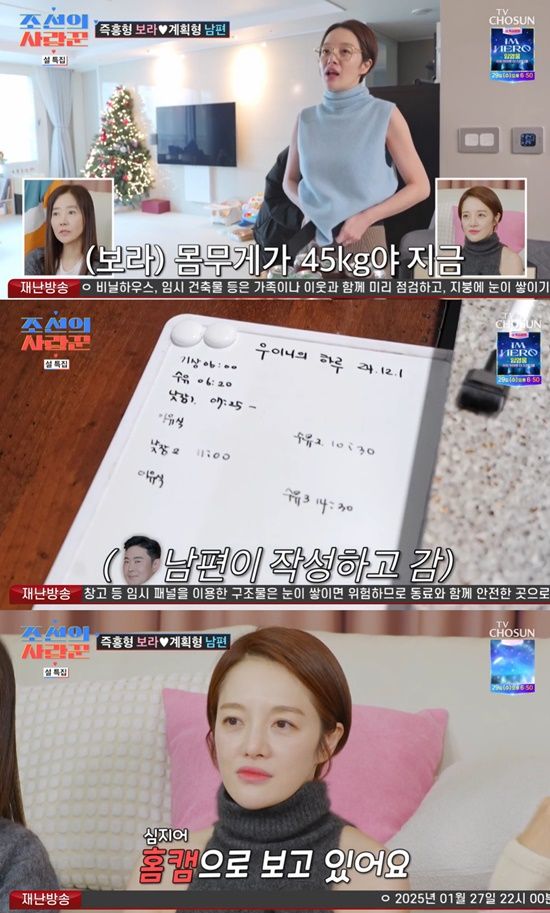 조선의
사랑꾼
설 특집
즉흥형 보라♥계획형 남편
TV CHOSUN
IM HERO
임영웅
29일(수)오후 6:50
(보라) 몸무게가 45kg야 지금
재난방송
ㅇ 비닐하우스, 임시 건축물 등은 가족이나 이웃과 함께 미리 점검하고, 지붕에 눈이 쌓이기
조선의
사랑꾼
설 특집
TV CHOSUN
IM HERO
임영웅
29일(수)오후 6:50
우이니의 하루 24.12.1
기상 06:00
수유 06:20
낮잠1. 07:25 -
이유식
수유2. 10:30
낮잠2 11:00
이유식
수유3 14:30
( 남편이 작성하고 감)
재난방송
창고 등 임시 패널을 이용한 구조물은 눈이 쌓이면 위험하므로 동료와 함께 안전한 곳으로
조선의
사랑꾼
설 특집
즉흥형 보라♥계획형 남편
TV CHOSUN
29일(수)오후 6:50
심지어
홈캠으로 보고 있어요
재난방송
ㅇ 2025년 01월 27일 22시 00분